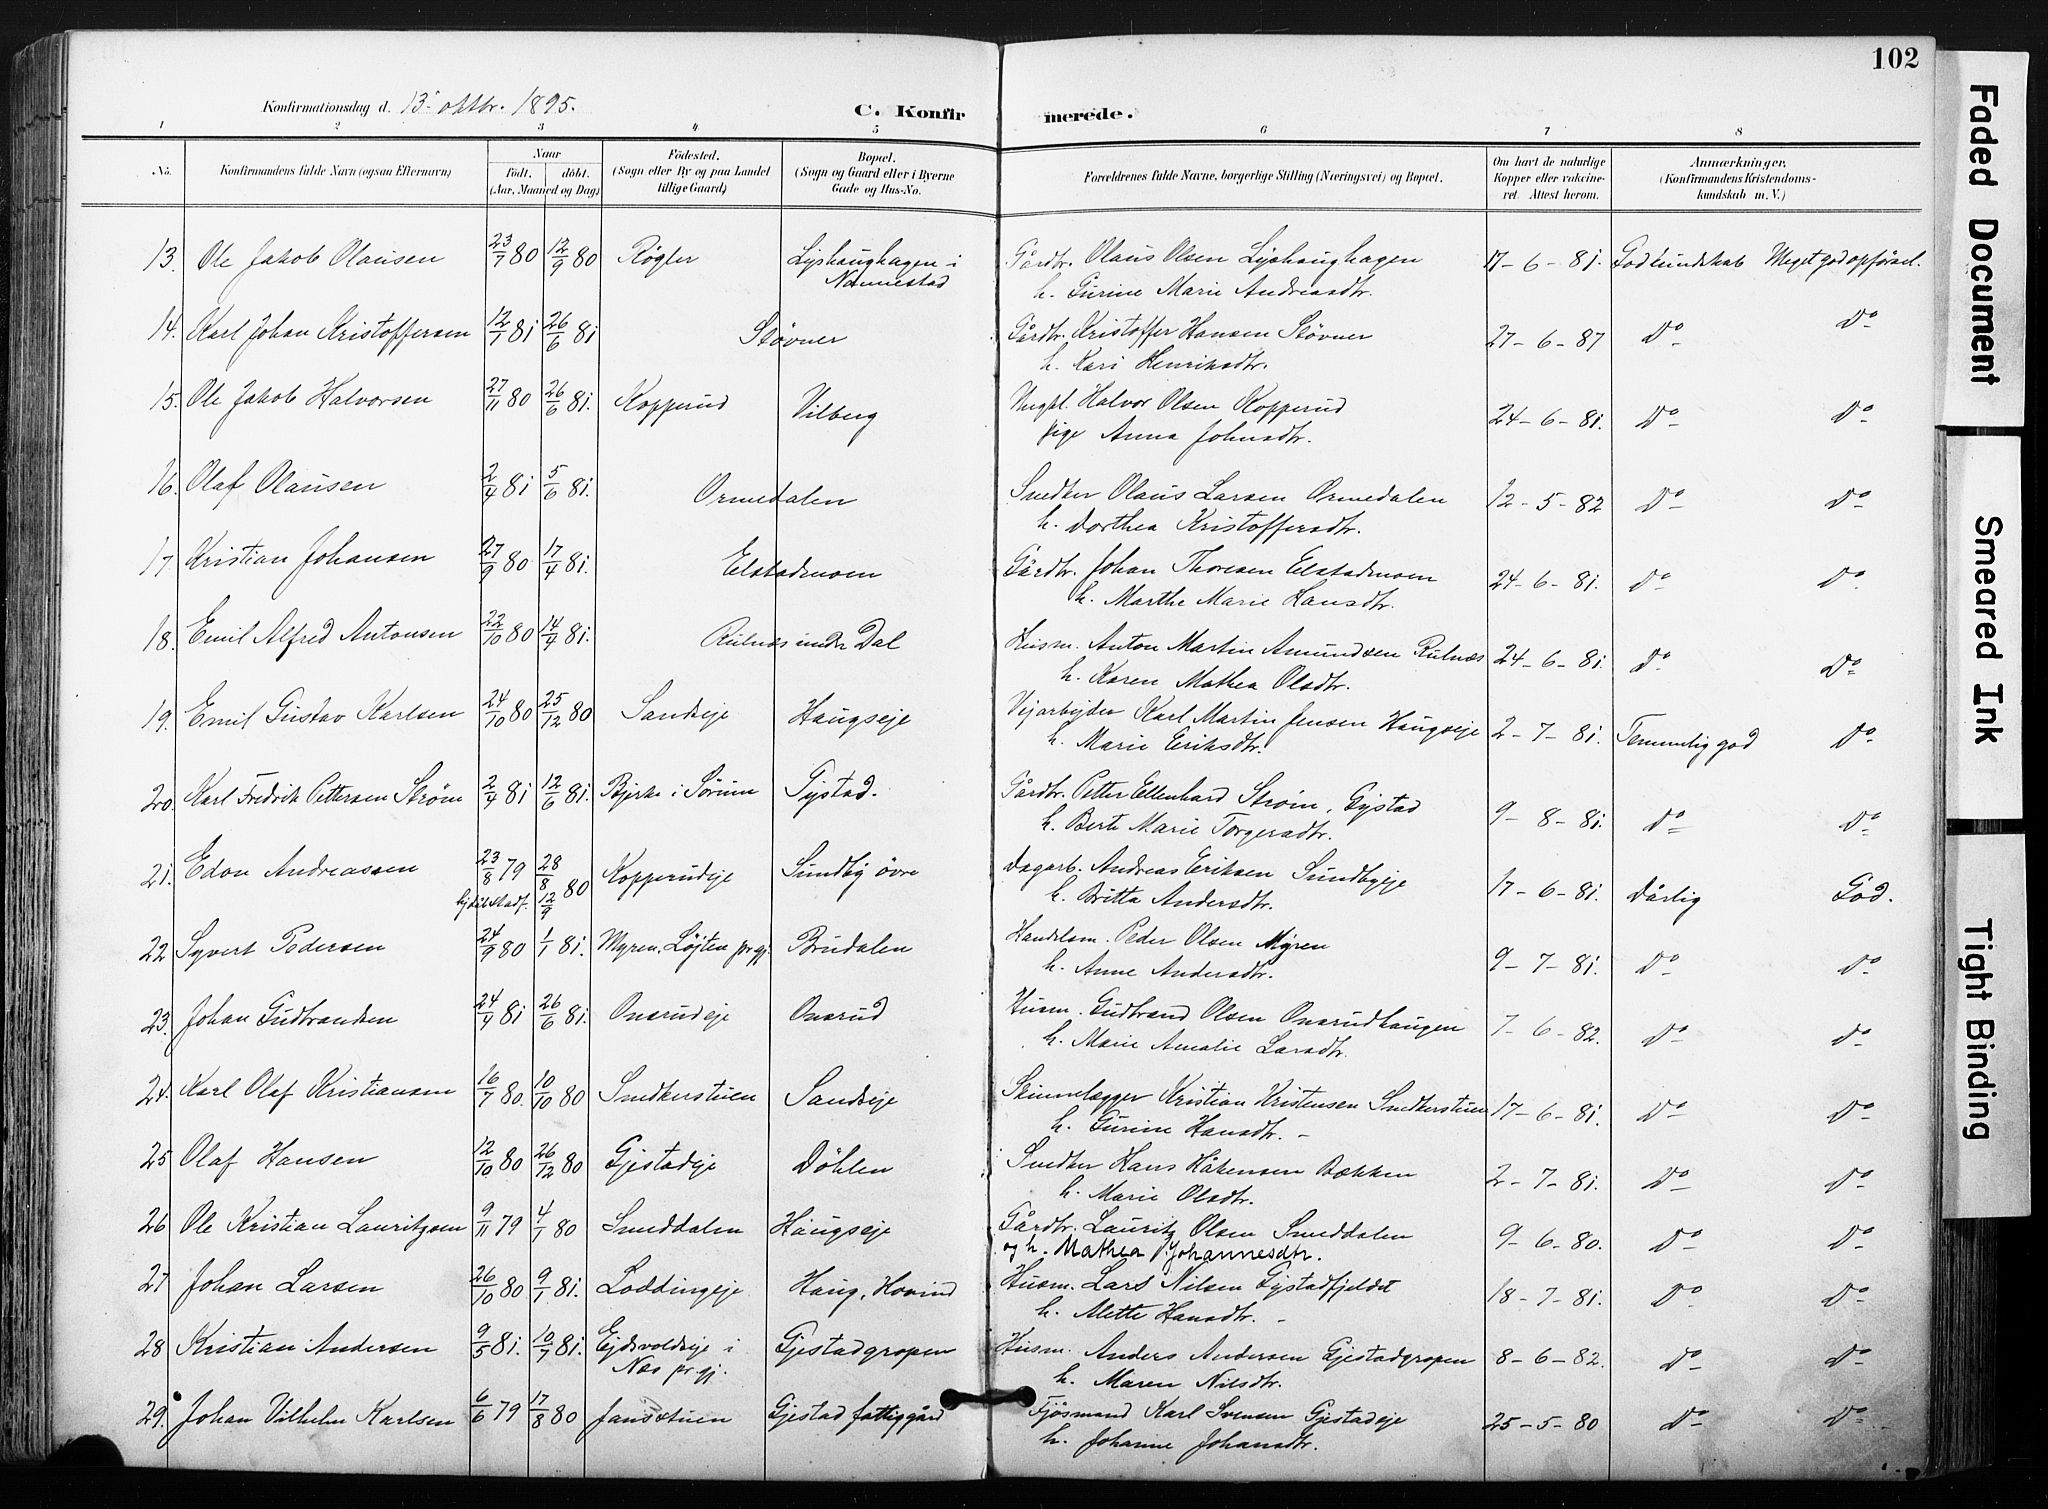 102
Konfirmationsdag d. 13. oktbr. 1895. C. Konfirmerede.
1 2 3 4 5 6 7 8
No. Konfirmandens fulde Navn (ogsaa Efternavn) Naar født. døbt. (Aar, Maaned og Dag) Fødested. (Sogn eller By og paa Landet tillige Gaard) Bopæl. (Sogn og Gaard eller i Byerne Gade og Hus-No. Forældrenes fulde Navne, borgerlige Stilling (Næringsvei) og Bopæl. Om havt de naturlige Kopper eller vakcineret. Attest herom. Anmærkninger. (Konfirmandens Kristendomskundskab m. V.)
13. Ole Jakob Olausen 23/7 80 12/9 80 Røgler Lyshaughagen i Gårdbr. Olaus Olsen Lyshaughagen 17-6-81. God kundskab Meget god opførsel.
Nannestad h. Gurine Marie Andreasdtr.
14. Karl Johan Kristoffersen 12/1 81 26/6 81 Støvner Gårdbr. Kristoffer Hansen Støvner 27-6-87 Do Do
h. Kari Henriksdtr.
15. Ole Jakob Halvorsen 27/11 80 26/6 81. Kopperud Vilberg Ungkl. Halvor Olsen Kopperud 24-6-81. Do Do
pige Anna Johnsdtr.
16. Olaf Olausen 2/4 81 5/6 81. Ormedalen Snedker Olaus Larsen Ormedalen 12-5-82 Do Do
h. Dorthea Kristoffersdtr.
17. Kristian Johansen 27/9 80 17/4 81. Elstadmoen Gårdbr. Johan Thoresen Elstadmoen 24-6-81. Do Do
h. Marthe Marie Hansdtr.
18. Emil Alfred Antonsen 22/10 80 14/4 81. Rulnæs under Dal Husm. Anton Martin Amundsen Rulnæs 24-6-81. Do Do
h. Karen Mathea Olsdtr.
19. Emil Gustav Karlsen 24/10 80 25/12 80 Sandseje Haugseje Vejarbejder Karl Martin Jensen Haugseje 2-7-81. Temmelig god Do
h. Marie Eriksdtr.
20. Karl Fredrik Pettersen Strøm 2/4 81 12/6 81. Bjerke i Sørum Gystad. Gårdbr. Petter Ellenhard Strøm, Gystad 9-8-81. Do Do
h. Berte Marie Torgersdtr.
21. Edon Andreassen 23/8 79 28/8 80 Kopperudeje Sundby øvre Dagarb. Andreas Eriksen Sundbyeje 17-6-81. Dårlig God.
12/9 h. Britta Andersdtr.
22 Syvert Pedersen 24/9 80 1/1 81. Myren, Løjten pr.gj. Brudalen Handelsm. Peder Olsen Myren 9-7-81. Do Do
h. Anne Andersdtr.
23. Johan Gudbrandsen 24/4 81 26/6 81. Onsrudeje Onsrud Husm. Gudbrand Olsen Onsrudhaugen 7-6-82. Do Do
h. Marie Amalie Larsdtr.
24. Karl Olaf Kristiansen 16/7 80. 10/10 80 Snedkerstuen Sandseje Skinnelægger Kristian Kristensen Snedkerstuen 17-6-81. Do Do
h. Gurine Hansdtr.
25 Olaf Hansen 12/10 80 26/12 80 Gjestadeje Döhlen Snedker Hans Håkensen Bækken 2-7-81. Do Do
h. Marie Olsdtr.
26 Ole Kristian Lauritzsen 9/11 79 4/1 80 Smeddalen Haugseje Gårdbr. Lauritz Olsen Smeddalen 9-6-80. Do Do
og h. Mathea Johannesdtr.
27 Johan Larsen 26/10 80 9/1 81. Loddingeje Haug, Hovind Husm. Lars Nilsen Gystadfjeldet 18-7-81. Do Do
h. Alette Hansdtr.
28 Kristian Andersen 9/5 81. 10/7 81. Ejdsvoldseje i Gjestadgropen Husm. Anders Andersen Gjestadgropen 8-6-82. Do Do
Næs pr.gj. h. Maren Nilsdtr.
29. Johan Vilhelm Karlsen 6/6 79 17/8 80 Jansstuen Gjestad fattiggård Fjøsmand Karl Svensen Gjestadeje 25-5-80 Do Do
h. Johanne Johansdtr.
Faded Document
Smeared Ink
Tight Binding